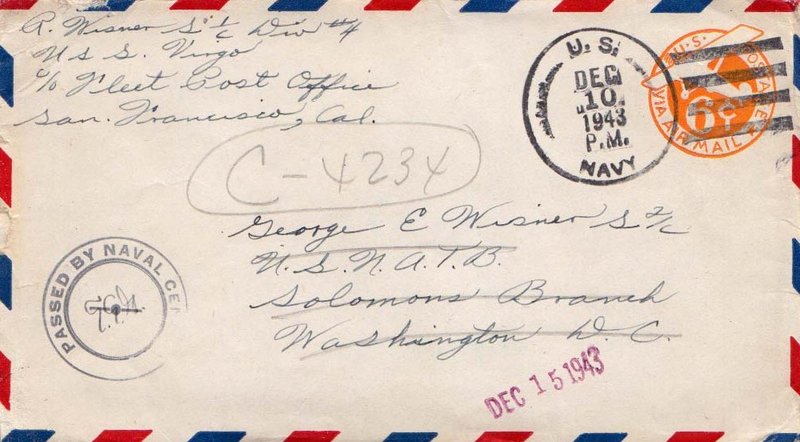 R. Wisner S 1/c Div #4
U S S. Virgo
c/o Fleet Post Office
San. Francisco, Cal.
U. S.
DEC
10
1943
P.M.
NAVY
U.S. POSTAGE
6¢
VIA AIR MAIL
C-4234
George E Wisner S 2/c
U.S.N.A.T.B.
Solomons Branch
Washington D.C.
PASSED BY NAVAL CEN
DEC 15 1943